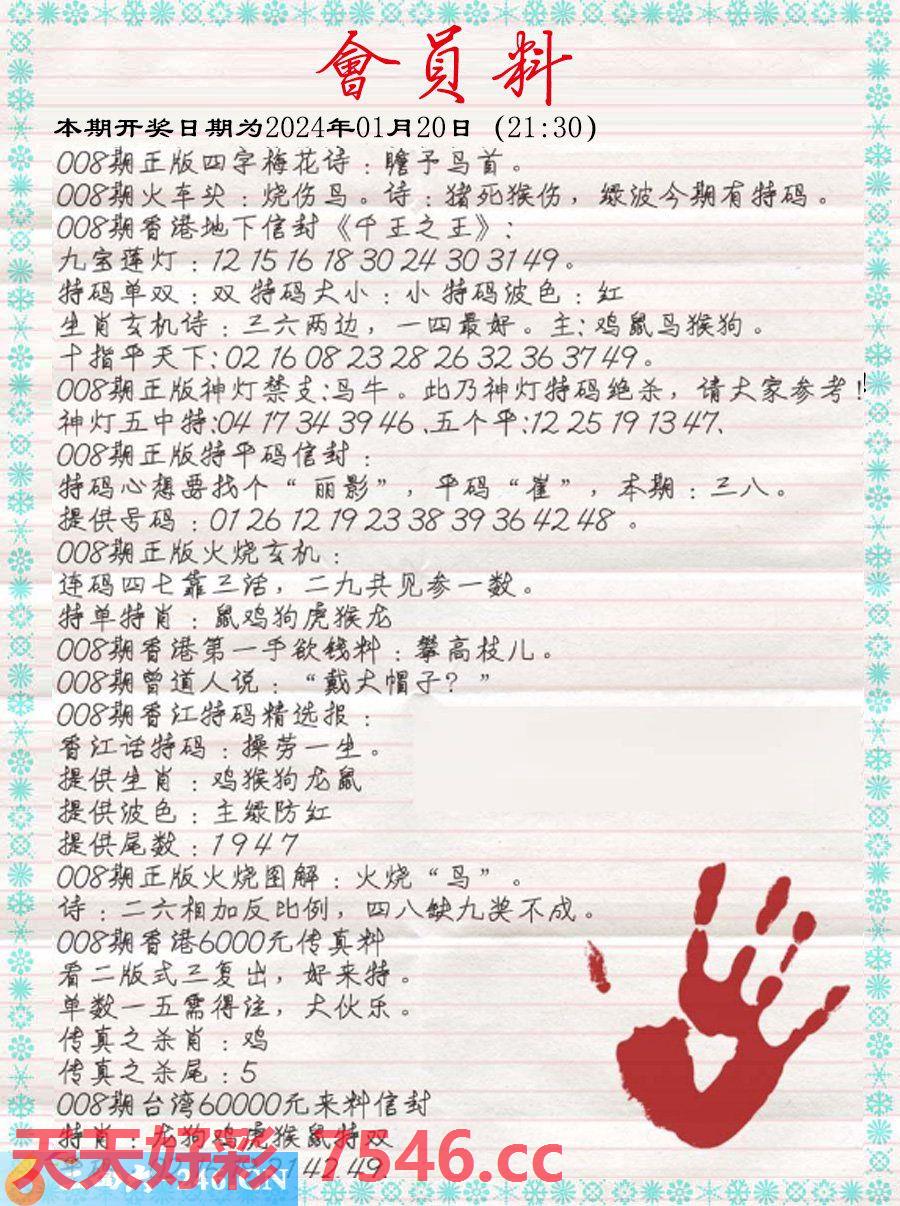 會員料
本期开奖日期为2024年01月20日 (21:30)
008期正版四字梅花诗：瞻予马首。
008期火车头：烧伤鸟。诗：猪死猴伤，绿波今期有特码。
008期香港地下信封《千王之王》：
九宝莲灯：12 15 16 18 30 24 30 31 49。
特码单双：双 特码大小：小 特码波色：红
生肖玄机诗：三六两边，一四最好。主：鸡鼠马猴狗。
十指平天下：02 16 08 23 28 26 32 36 37 49。
008期正版神灯禁支:马牛。此乃神灯特码绝杀，请大家参考！
神灯五中特:04 17 34 39 46、五个平:12 25 19 13 47、
008期正版特平码信封：
特码心想要找个“丽影”，平码“崔”，本期：三八。
提供号码：01 26 12 19 23 38 39 36 42 48 。
008期正版火烧玄机：
连码四七靠三活，二九共见参一数。
特单特肖：鼠鸡狗虎猴龙
008期香港第一手欲钱料：攀高枝儿。
008期曾道人说：“戴大帽子？”
008期香江特码精选报：
香江话特码：操劳一生。
提供生肖：鸡猴狗龙鼠
提供波色：主绿防红
提供尾数：1 9 4 7
008期正版火烧图解：火烧“鸟”。
诗：二六相加反比例，四八缺九奖不成。
008期香港6000元传真料
看二版式三复出，好来特。
单数一五需得注，大伙乐。
传真之杀肖：鸡
传真之杀尾：5
008期台湾60000元来料信封
特肖：龙狗鸡虎猴鼠特双
天天好彩 7546.cc
42 49
246